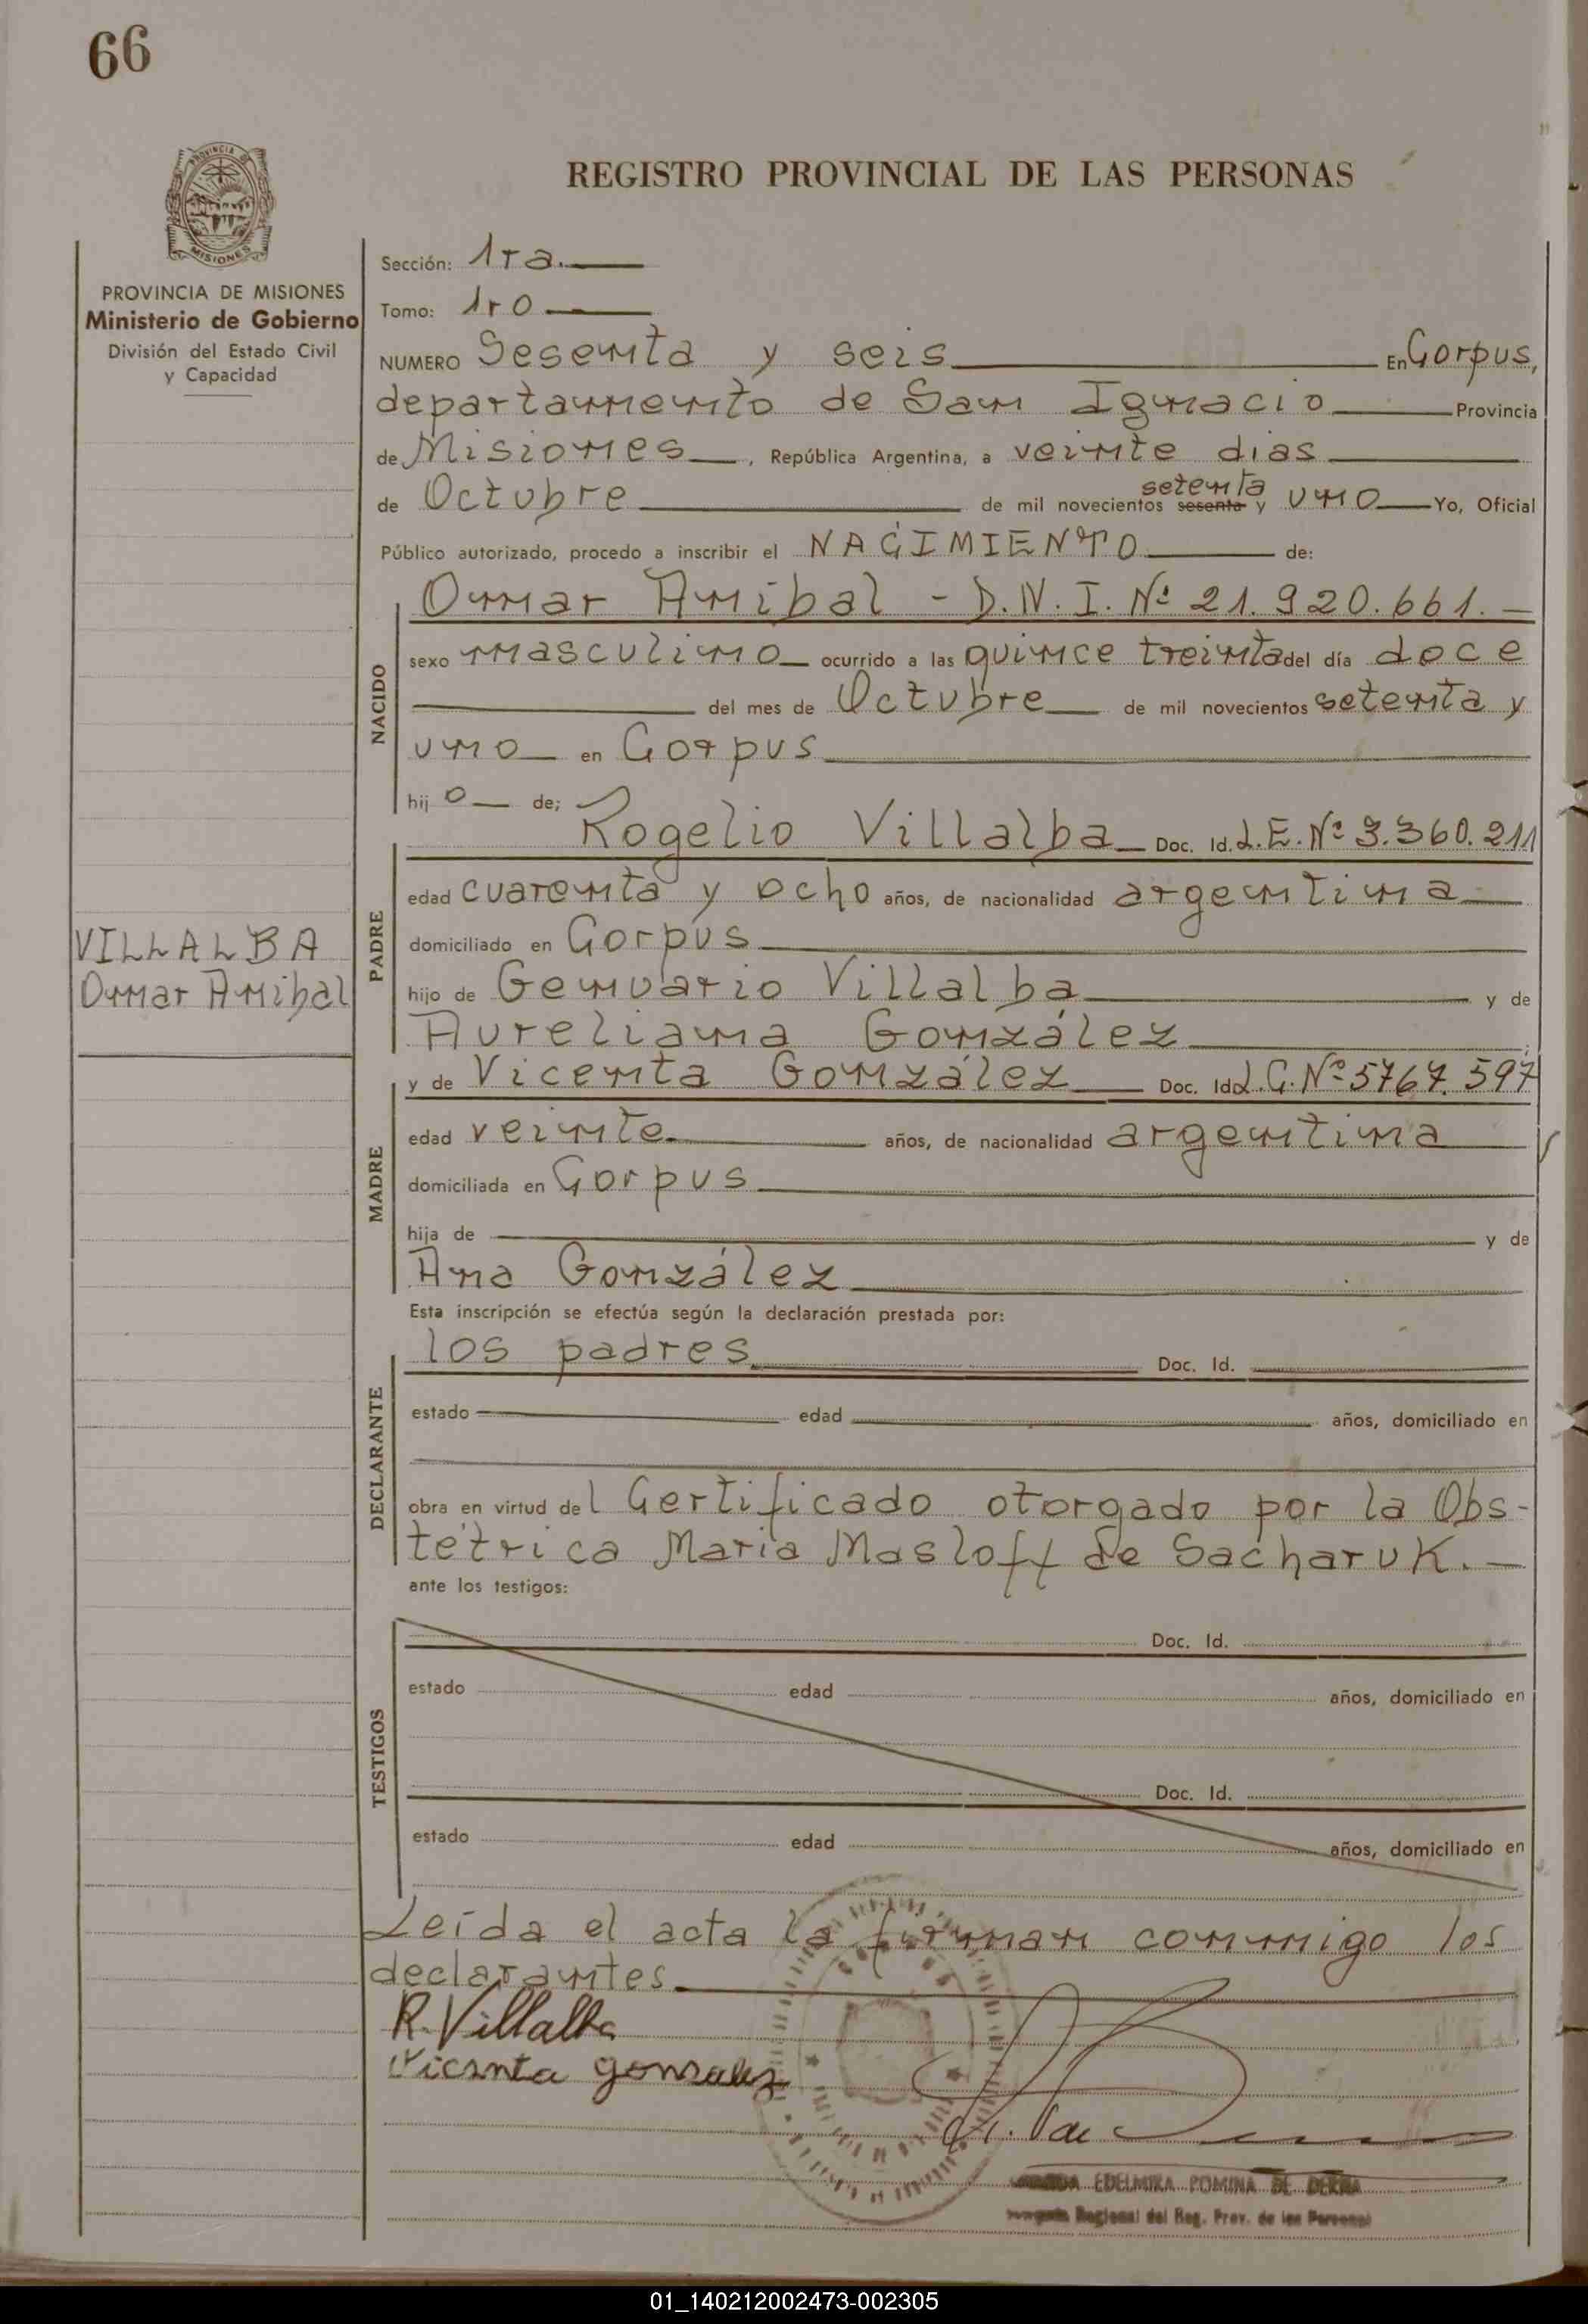 66
PROVINCIA DE
MISIONES
REGISTRO PROVINCIAL DE LAS PERSONAS
PROVINCIA DE MISIONES
Ministerio de Gobierno
División del Estado Civil
y Capacidad
VILLALBA
Omar Anibal
Sección: 1ra.
Tomo: 1ro
NUMERO Sesenta y seis En Corpus,
departamento de San Ignacio Provincia
de Misiones, República Argentina, a veinte dias
setenta
de Octubre de mil novecientos sesenta y uno Yo, Oficial
Público autorizado, procedo a inscribir el NACIMIENTO de:
NACIDO
Omar Anibal - D.N.I. Nº 21.920.661.-
sexo masculino ocurrido a las quince treinta del día doce
del mes de Octubre de mil novecientos setenta y
uno en Corpus
hijo de;
PADRE
Rogelio Villalba Doc. Id. L.E. Nº 3.360.211
edad cuarenta y ocho años, de nacionalidad argentina
domiciliado en Corpus
hijo de Genuario Villalba y de
Aureliana González
MADRE
y de Vicenta González Doc. Id L.C. Nº 5767.597
edad veinte años, de nacionalidad argentina
domiciliada en Corpus
hija de y de
Ana González
Esta inscripción se efectúa según la declaración prestada por:
DECLARANTE
los padres Doc. Id.
estado edad años, domiciliado en
obra en virtud del Certificado otorgado por la Obs-
tétrica Maria Masloff de Sacharuk.-
ante los testigos:
TESTIGOS
Doc. Id.
estado edad años, domiciliado en
Doc. Id.
estado edad años, domiciliado en
Leída el acta la firman conmigo los
declarantes
R. Villalba
Vicenta gonzalez
EDELMIRA POMINA DE
Regional del Reg. Prov. de las Personas
01_140212002473-002305